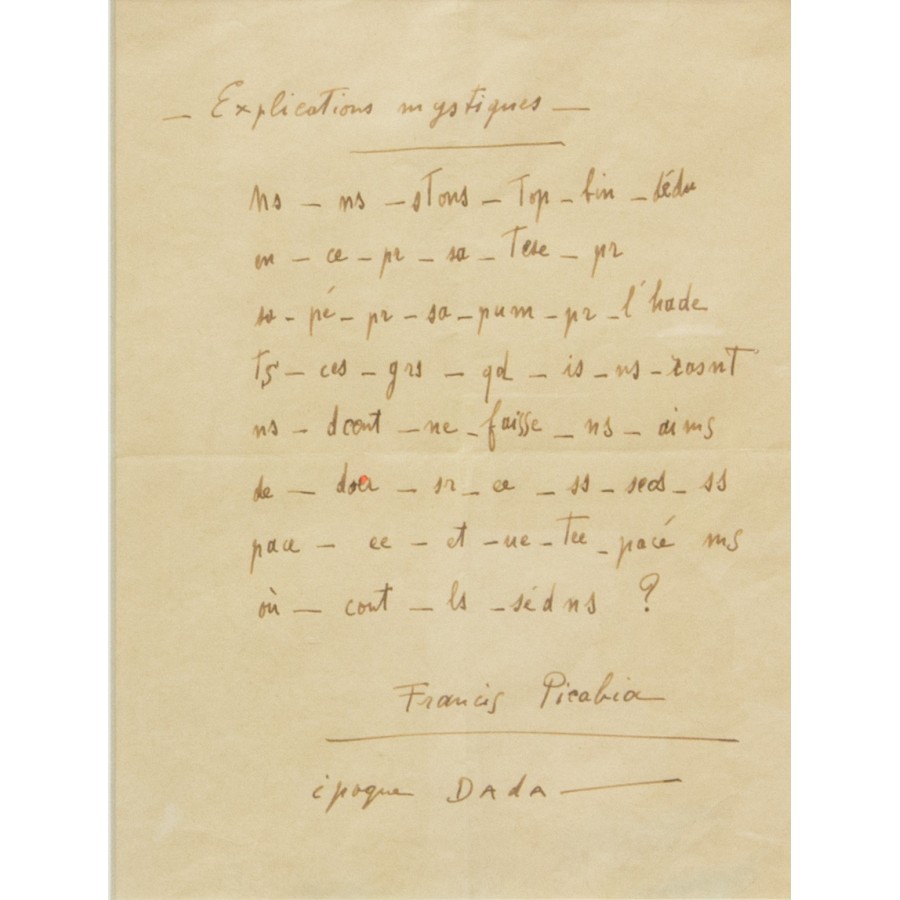 — Explications mystiques —
Ns — ns — stons — Top — bin — dédu
en — ce — pr — sa — Tese — pr
sa — pé — pr — sa — pum — pr — l'hade
— ces — grs — qd — is — ns — rosnT
ns — dcont — ne — faisse — ns — aims
de — — sr — ce — ss — seos — ss
pace — ee — et — ue — Tee — pacé ms
où — cont — ls — sédns ?
Francis Picabia
époque DAdA —